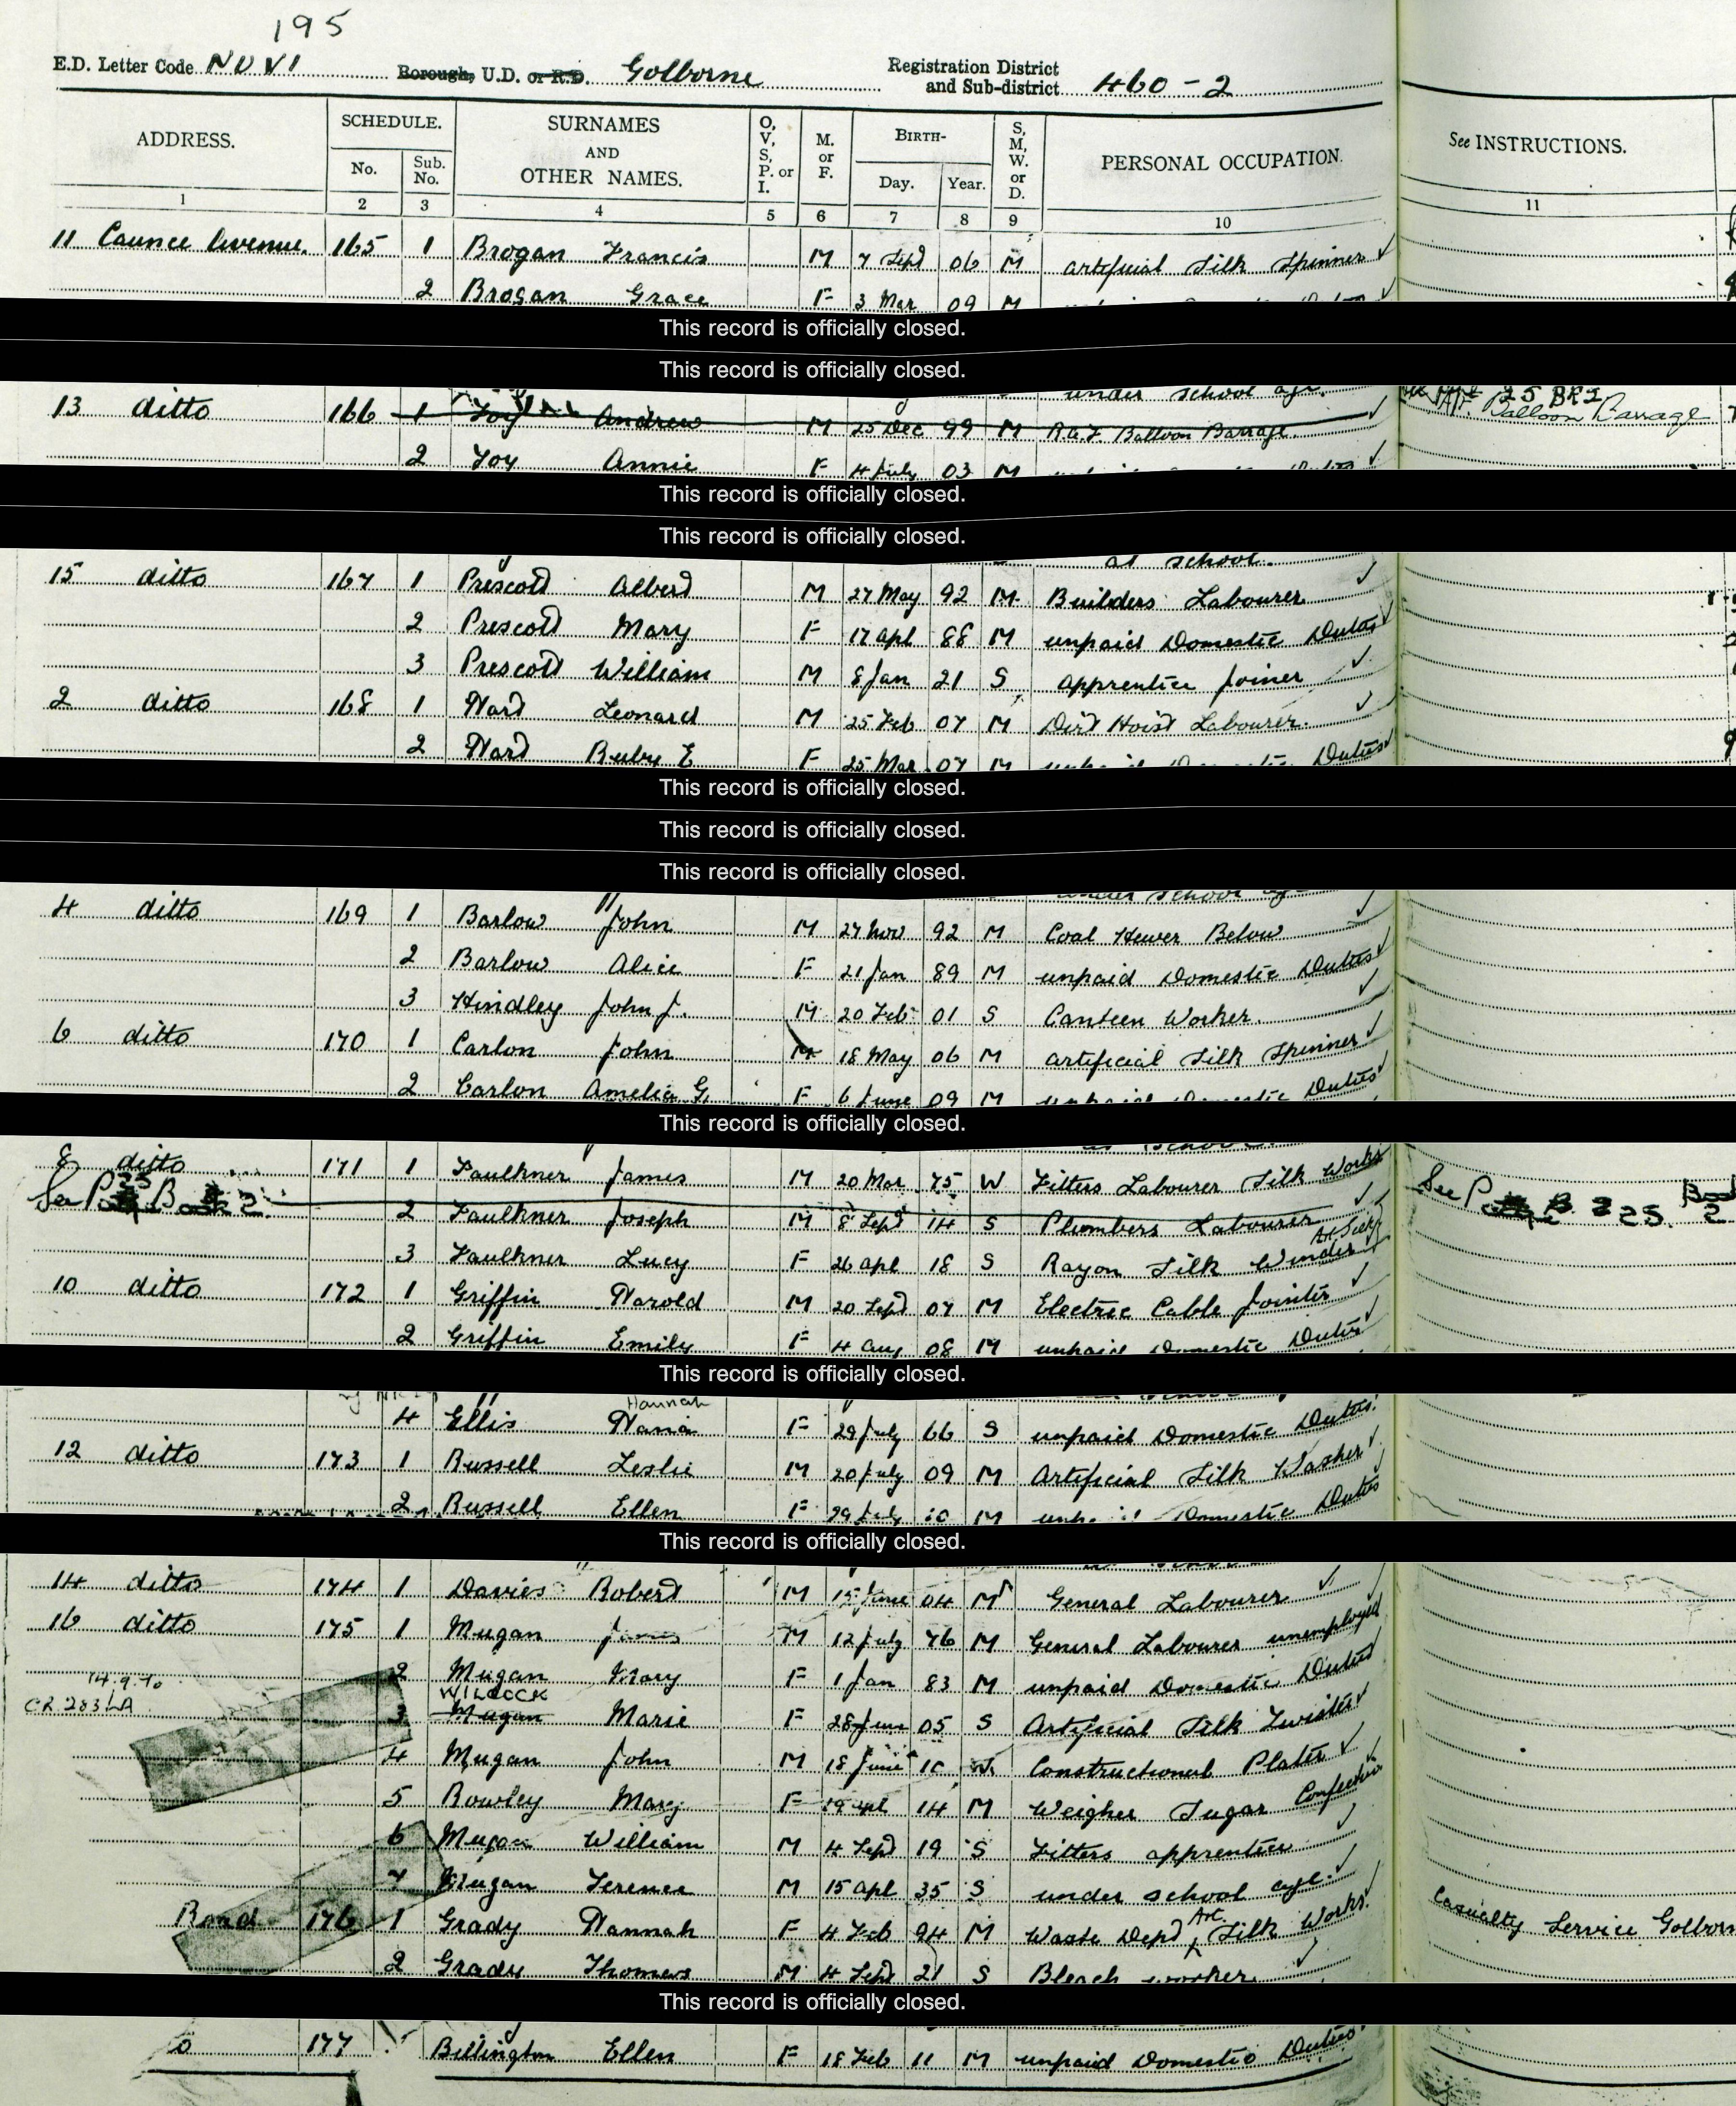 195
E.D. Letter Code NUVI Borough, U.D. or R.D. Golborne Registration District and Sub-district 460-2
ADDRESS. SCHEDULE. No. Sub. No. SURNAMES AND OTHER NAMES. O, V, S, P. or I. M. or F. BIRTH- Day. Year. S, M, W. or D. PERSONAL OCCUPATION. See INSTRUCTIONS.
1 2 3 4 5 6 7 8 9 10 11
11 Caunce Avenue. 165 1 Brogan Francis M 7 Sept 06 M Artificial Silk Spinner
2 Brogan Grace F 3 Mar 09 M
This record is officially closed.
This record is officially closed.
under school age.
13 ditto 166 1 Foy Andrew M 25 Dec 99 M R.A.F. Balloon Barrage. Balloon Barrage
2 Foy Annie F 4 July 03 M
This record is officially closed.
This record is officially closed.
at school.
15 ditto 167 1 Prescott Albert M 27 May 92 M Builders Labourer
2 Prescott Mary F 17 Apl 88 M unpaid Domestic Duties
3 Prescott William M 8 Jan 21 S apprentice Joiner
2 ditto 168 1 Ward Leonard M 25 Feb 07 M Dirt Hoist Labourer.
2 Ward Ruby E F 25 Mar 07 M unpaid Domestic Duties
This record is officially closed.
This record is officially closed.
This record is officially closed.
under school age
4 ditto 169 1 Barlow John M 27 Nov 92 M Coal Hewer Below
2 Barlow Alice F 21 Jan 89 M unpaid Domestic Duties
3 Hindley John J. M 20 Feb 01 S Canteen Worker.
6 ditto 170 1 Carlon John M 18 May 06 M Artificial Silk Spinner
2 Carlon Amelia G. F 6 June 09 M unpaid Domestic Duties
This record is officially closed.
8 ditto 171 1 Faulkner James M 20 Mar 75 W Fitters Labourer Silk Works
See Book 2. 2 Faulkner Joseph M 8 Sept 14 S Plumbers Labourer See 25. Book 2
3 Faulkner Lucy F 26 Apl 18 S Rayon Silk Winder
10 ditto 172 1 Griffin Harold M 20 Sept 07 M Electric Cable Jointer
2 Griffin Emily F 4 Aug 08 M unpaid Domestic Duties
This record is officially closed.
Hannah
4 Ellis Hana F 29 July 66 S unpaid Domestic Duties.
12 ditto 173 1 Russell Leslie M 20 July 09 M Artificial Silk Washer
2 Russell Ellen F 29 July 10 M unpaid Domestic Duties
This record is officially closed.
14 ditto 174 1 Davies Robert M 15 June 04 M General Labourer
16 ditto 175 1 Mugan James M 12 July 76 M General Labourer unemployed
14.9.70 2 Mugan Mary F 1 Jan 83 M unpaid Domestic Duties
WILCOCK
CR 283 LA 3 Mugan Marie F 28 June 05 S Artificial Silk Twister
4 Mugan John M 18 June 10 Constructional Plater
5 Rowley Mary F 14 M Weigher Sugar
6 Mugan William M 4 Sept 19 S Fitters apprentice
7 Mugan Terence M 15 Apl 35 S under school age.
176 1 Grady Hannah F 4 Feb 94 M Waste Dept Art. Silk Works. Casualty Service Golborn
2 Grady Thomas M 4 Sept 21 S Bleach worker
This record is officially closed.
177 Billington Ellen F 18 Feb 11 M unpaid Domestic Duties